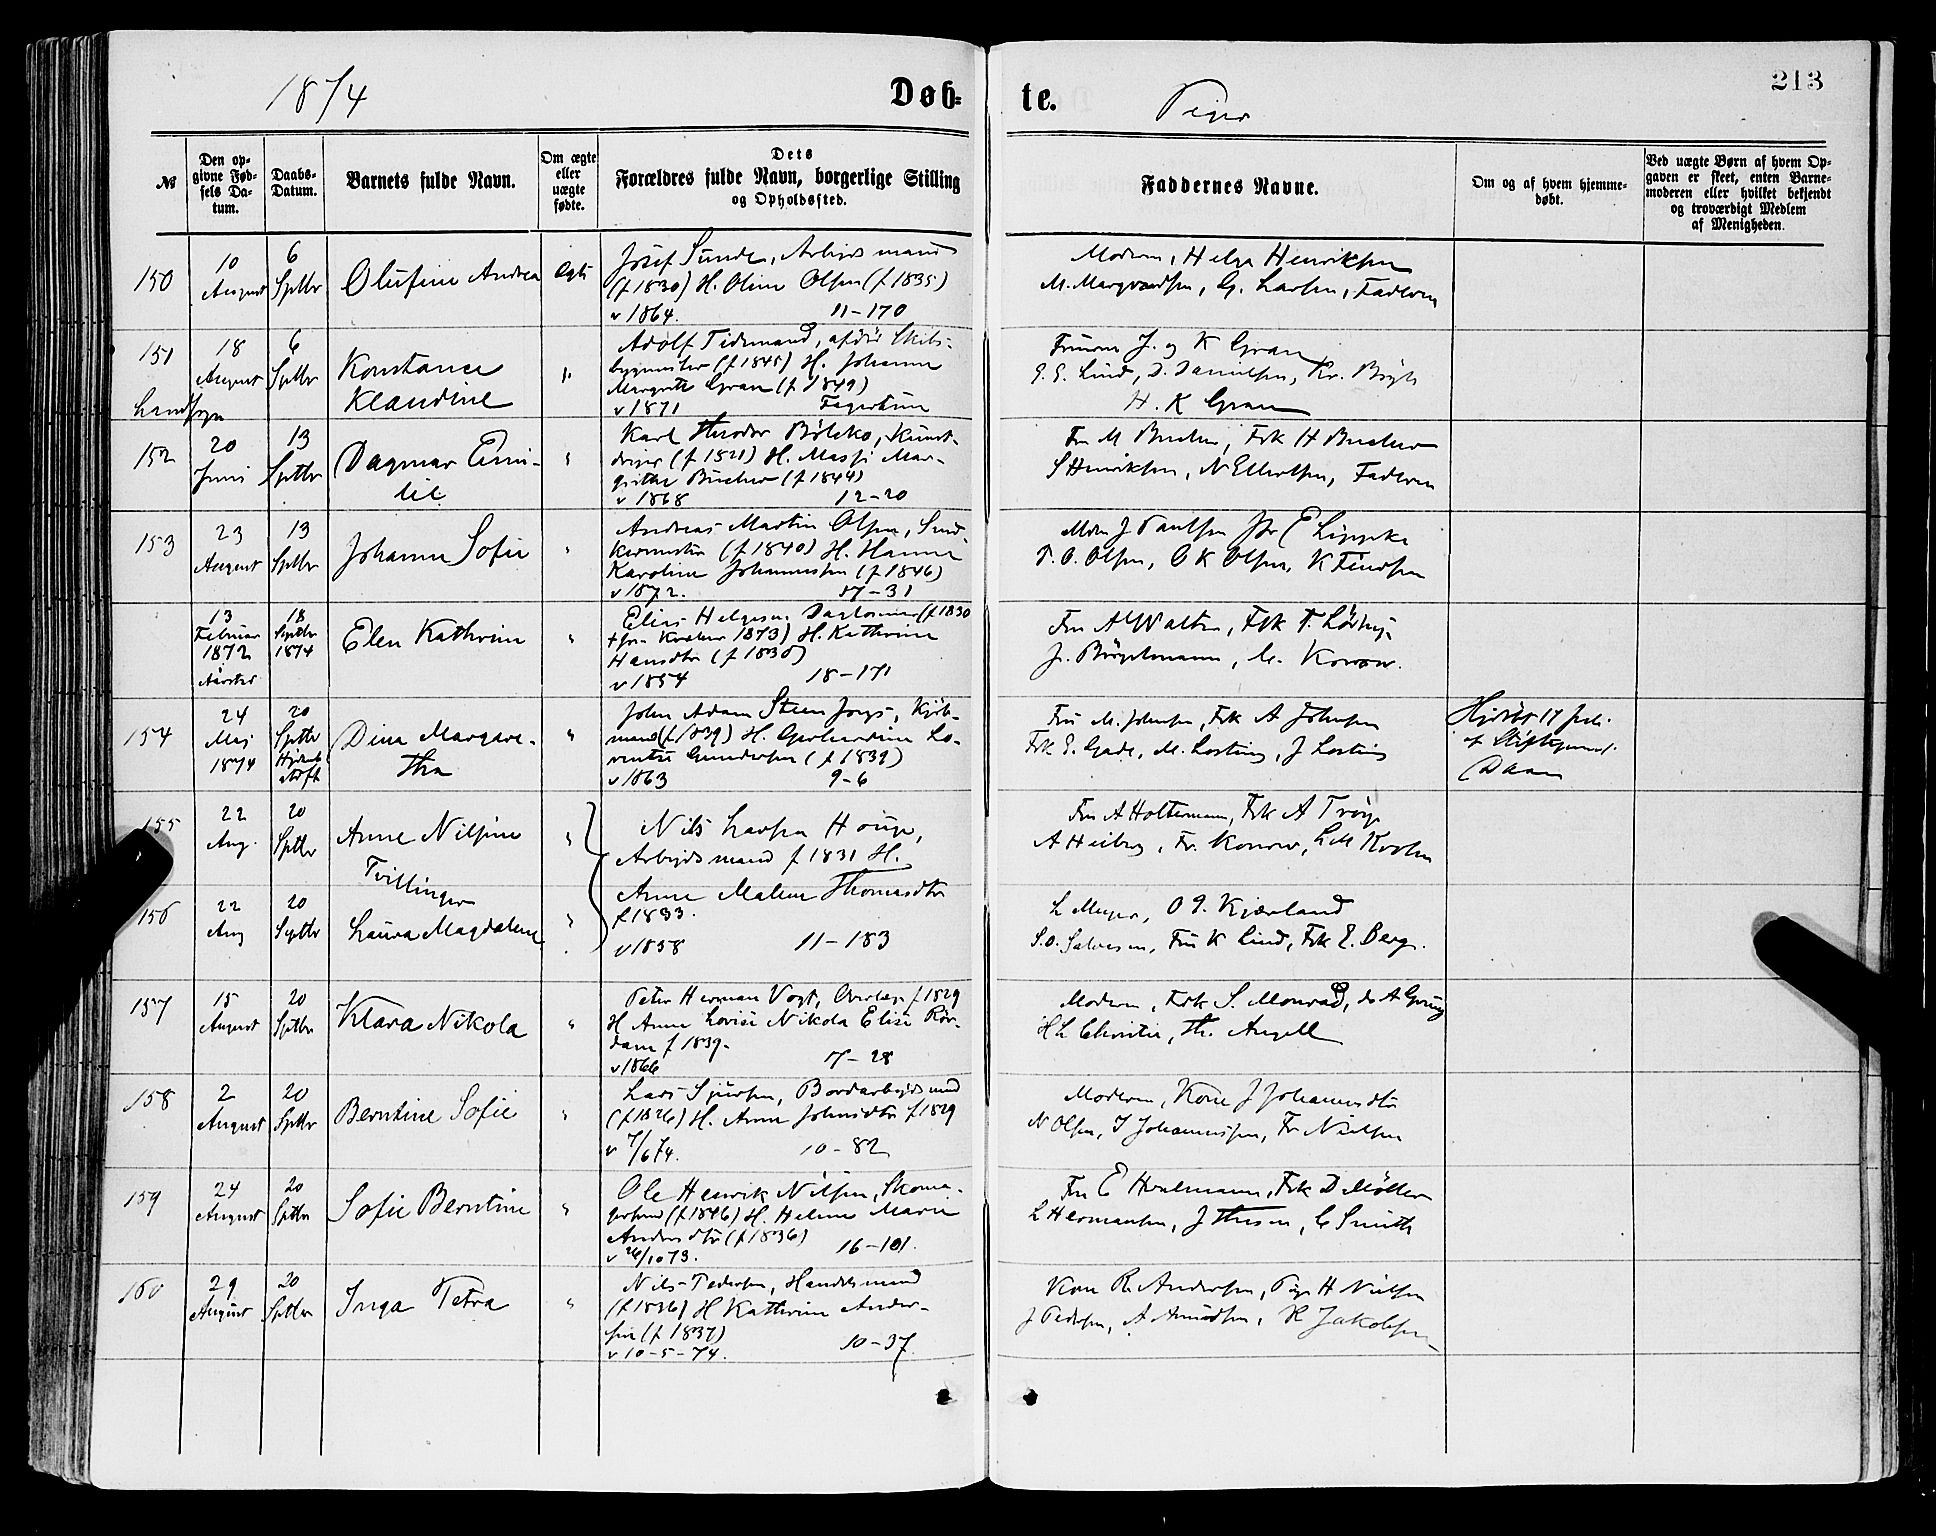 1874
Døb-
te.
Piger
213
№
Den op-
givne Fød-
sels Da-
tum.
Daabs-
Datum.
Barnets fulde Navn.
Om ægte
eller
uægte
fødte.
Dets
Forældres fulde Navn, borgerlige Stilling
og Opholdssted.
Faddernes Navne.
Om og af hvem hjemme-
døbt.
Ved uægte Børn af hvem Op-
gaven er skeet, enten Barne-
moderen eller hvilket bekjendt
og troværdigt Medlem
af Menigheden.
150
10
August
6
Septbr
Olufine Andrea
Egte
Josef Sunde, Arbejdsmand
(f 1830) H. Oline Olsen (f 1835)
v 1864. 11-170
Moderen, Helga Henriksen
M. Margvardsen, G. Larsen, Faderen
151
Landsogn
18
August
6
Septbr
Konstance
Klaudine
Adolf Tidemand, Skibs-
bygmester (f 1845) H. Johanne
Margrete Gran (f 1849)
v 1871
Fruerne J. og K Gran
E. E. Lind, D. Danielsen, Kr. Bøgh
H. K Gran
152
20
Juni
13
Septbr
Dagmar Emi-
lie
Karl Theodor Bøleko, Kunst-
drejer (f 1821) H. Massi Mar-
grethe Bucher (f 1844)
v 1868 12-20
Fru M Bucher, Frk H Bucher
S Henriksen, N Ellertsen, Faderen
153
23
August
13
Septbr
Johanne Sofie
Andreas Martin Olsen, Smed-
(f 1840) H. Hanne
Karoline Johannessen (f 1846)
v 1872. 17-31
J Paulsen E Lippeke
T. O. Olsen, O K Olsen, K Findsen
13
Februar
1872
18
Septbr
1874
Elen Kathrine
Elias Helgesen, (f 1830
1873) H. Kathrine
Hansdtr (f 1830)
v 1854 18-171
Fru A Walter, Frk T.
J. Bøgelmann, C. Konow.
154
24
Maj
1874
20
Septbr
Dina Margare-
tha
John Adam Steen Joys, Kjøb-
mand (f 1839) H. Gerhardine Lo-
rentze Gundersen (f 1839)
v 1863 9-6
Fru M. Johnsen, Frk A Johnsen
Frk E. Gade, M. Losting, J Losting
Hjdøbt 17 Juli
af Stiftsprovst
Daae
155
22
Aug.
20
Septbr
Anne Nilsine
Tvillinger
Nils Larsen Houge,
Arbejdsmand f 1831 H.
Anne Malene Thomasdtr
f 1833.
v 1858 11-183
Fru A Holtermann, Frk A Trøye
A Heiberg, Fr. Konow, L M Krohn
156
22
Aug
20
Septbr
Laura Magdalene
L Meyer, O J. Kjærland
S. O. Salvesen, Fru K Lind, Frk E. Berg.
157
15
August
20
Septbr
Klara Nikola
Peter Herman Vogt, Overlæge f 1829
H Anne Lovise Nikola Elise Rør-
dam f 1839.
v 1866 17-28
Moderen, Frk S. Monrad, do A Grieg
H L Christie, Th. Angell
158
2
August
20
Septbr
Berntine Sofie
Lars Sjursen, Bordarbejdsmand
(f 1826) H. Anne Johnsdtr f 1829
v 7/6 74. 10-82
Moderen, Kone J Johannesdtr
N Olsen, J Johannessen, Fr Nielsen
159
24
August
20
Septbr
Sofie Berntine
Ole Henrik Nilsen, Skoma-
gersvend (f 1846) H. Helene Marie
Andersdtr (f 1836)
v 26/10 73. 16-101.
Fru E Hvalmann, Frk D Møller
L Hermansen, J Thesen, C Smith
160
29
August
20
Septbr
Inga Petra
Nils Pedersen, Handelsmand
(f 1836) H Kathrine Ander-
sen (f 1837)
v 10-5-74. 10-37.
Kone R. Andersen, Pige H Nielsen
J Pedersen, A Amundsen, R Jakobsen